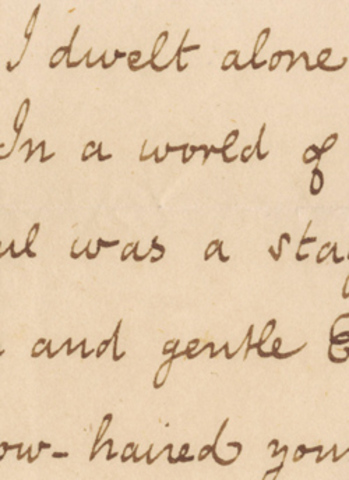 I dwelt alone
In a world of
ul was a stag
and gentle E
ow-haired youn